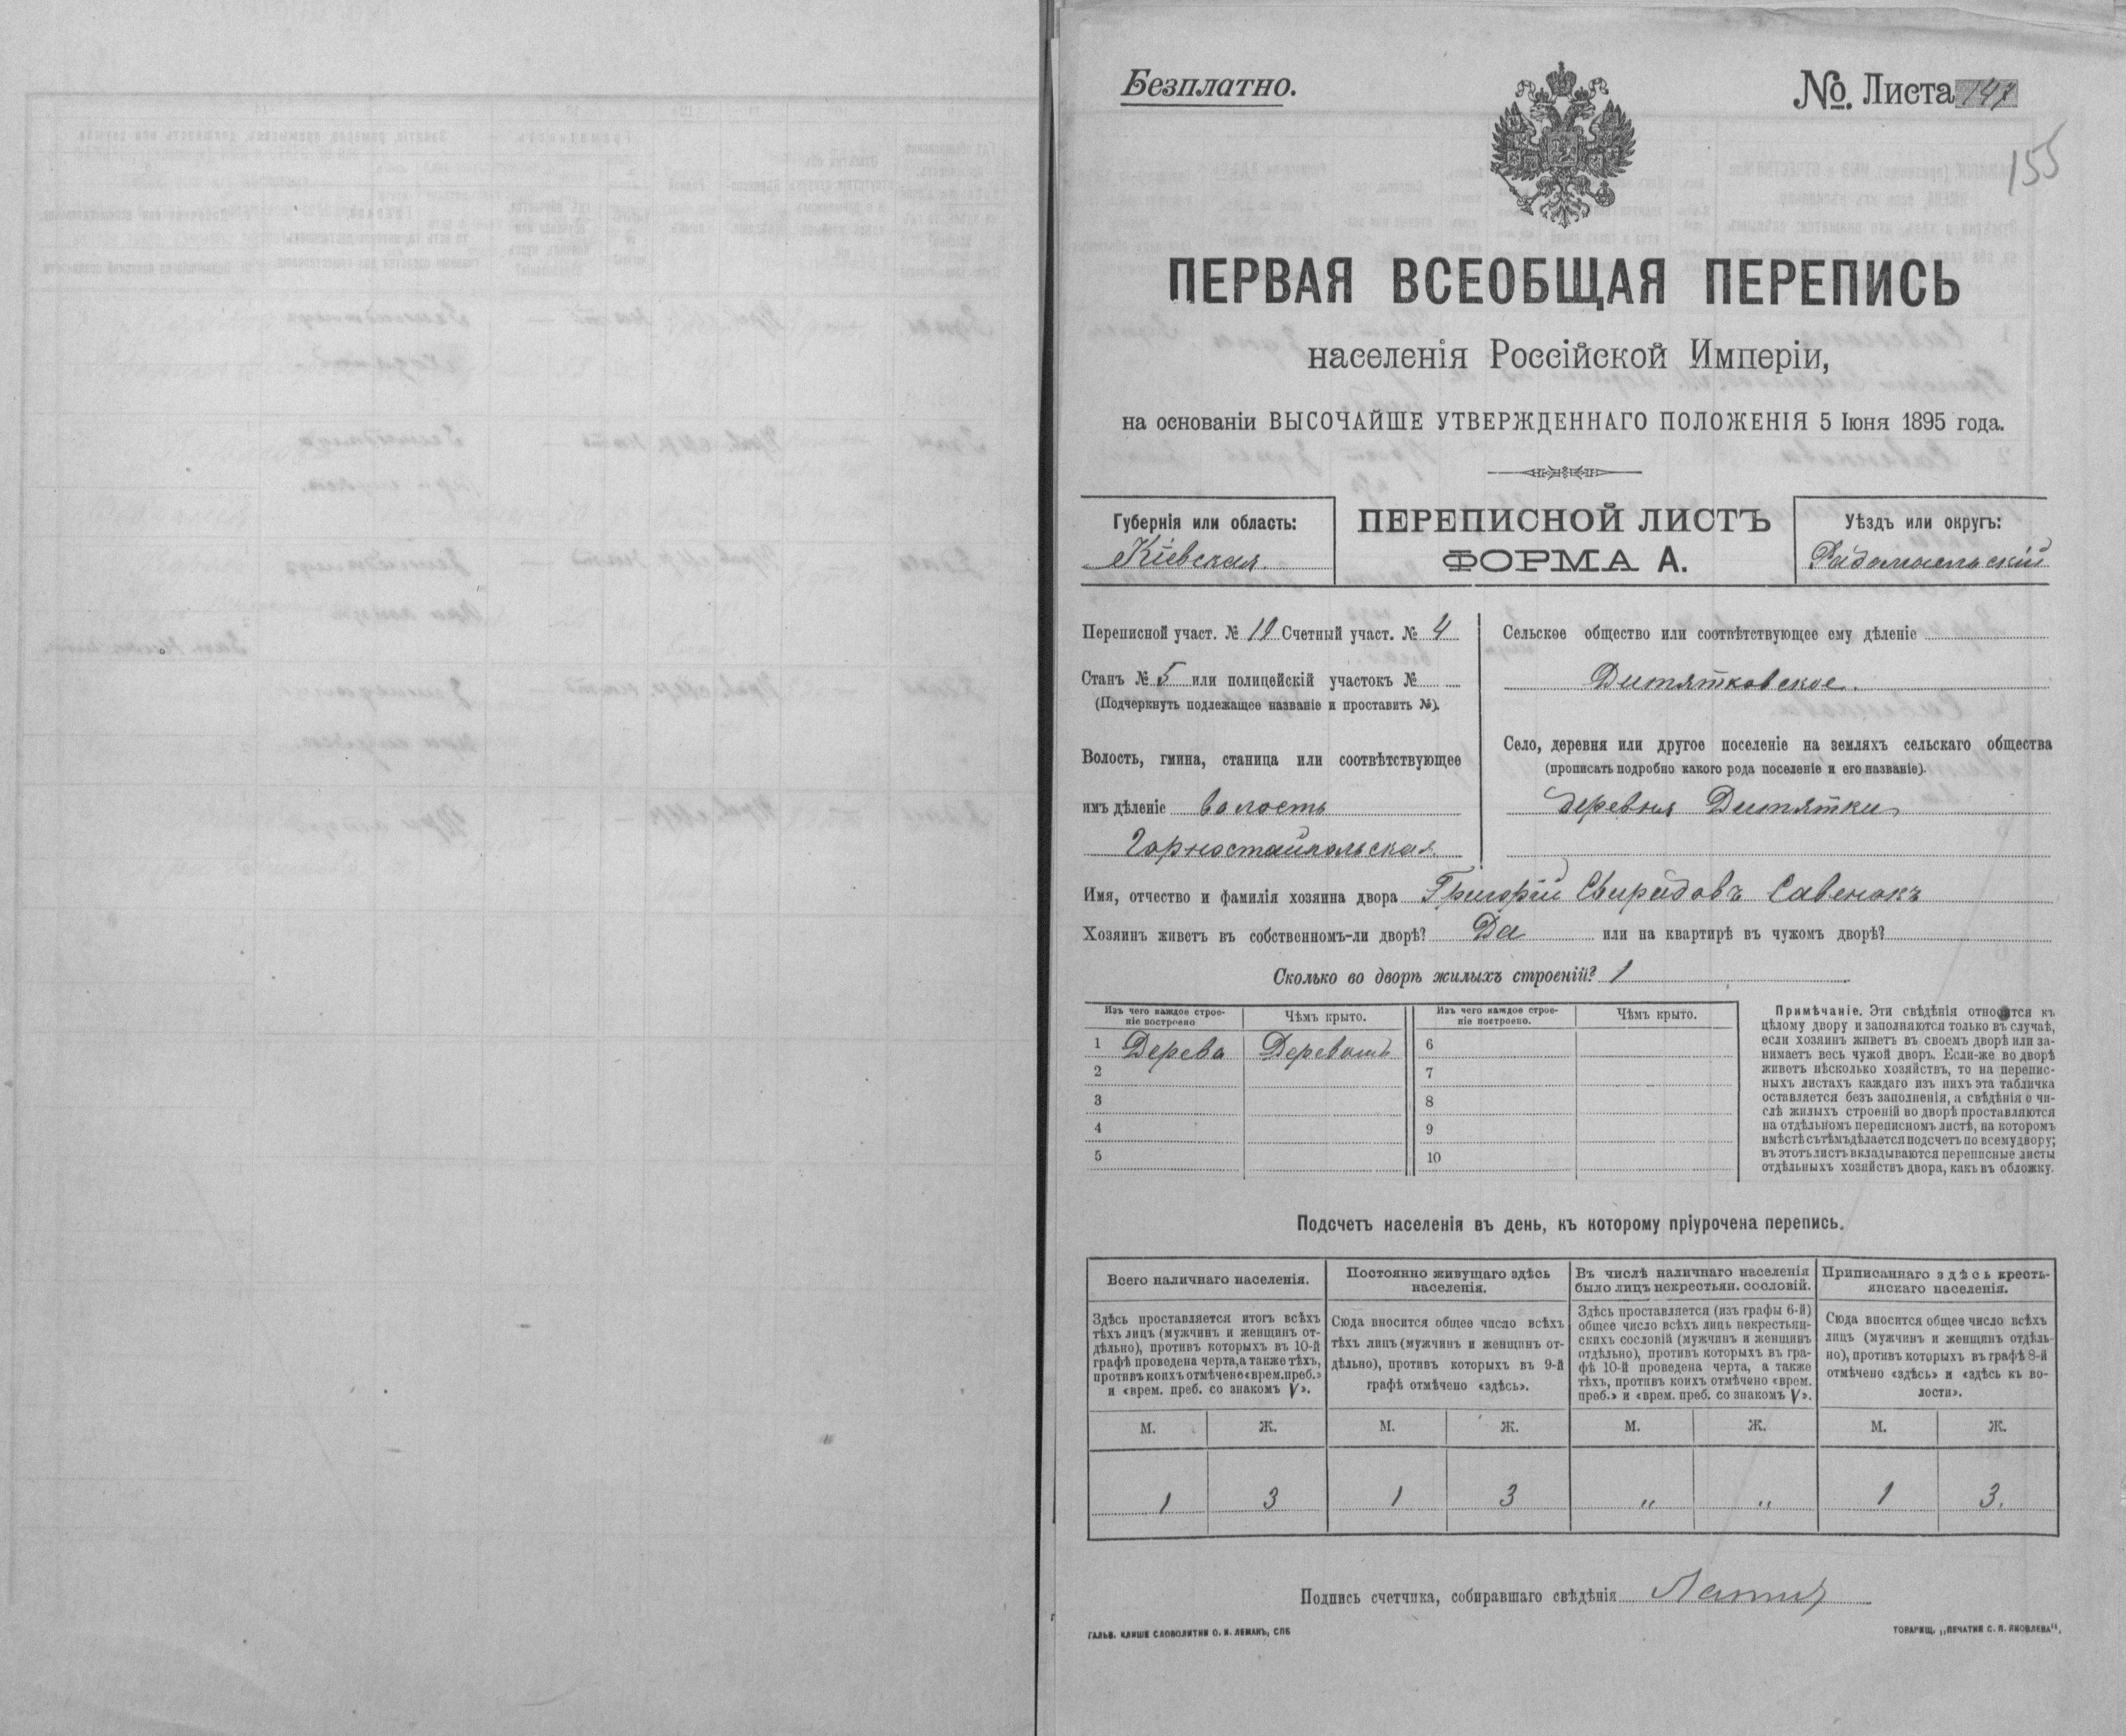 Безплатно.
№. Листа 147
155
ПЕРВАЯ ВСЕОБЩАЯ ПЕРЕПИСЬ
населенія Россійской Имперіи,
на основаніи ВЫСОЧАЙШЕ УТВЕРЖДЕННАГО ПОЛОЖЕНІЯ 5 Іюня 1895 года.
Губернія или область:
Кіевская
ПЕРЕПИСНОЙ ЛИСТЪ
ФОРМА А.
Уѣздъ или округъ:
Радомысльскій
Переписной участ. № 19 Счетный участ. № 4
Станъ № 5 или полицейскій участокъ №
(Подчеркнуть подлежащее названіе и проставить №).
Волость, гмина, станица или соотвѣтствующее
имъ дѣленіе волость
Горностайпольская
Сельское общество или соотвѣтствующее ему дѣленіе
Дитятковское.
Село, деревня или другое поселеніе на земляхъ сельскаго общества
(прописать подробно какого рода поселеніе и его названіе).
деревня Дитятки
Имя, отчество и фамилія хозяина двора Григорій Свиридовъ Савенокъ
Хозяинъ живетъ въ собственномъ-ли дворѣ? Да или на квартирѣ въ чужомъ дворѣ?
Сколько во дворѣ жилыхъ строеній? 1
Изъ чего каждое строе-
ніе построено
Чѣмъ крыто.
Изъ чего каждое строе-
ніе построено.
Чѣмъ крыто.
1 Дерева Деревомъ 6
2 7
3 8
4 9
5 10
Примѣчаніе. Эти свѣдѣнія относятся къ
цѣлому двору и заполняются только въ случаѣ,
если хозяинъ живетъ въ своемъ дворѣ или за-
нимаетъ весь чужой дворъ. Если-же во дворѣ
живетъ нѣсколько хозяйствъ, то на перепис-
ныхъ листахъ каждаго изъ нихъ эта табличка
оставляется безъ заполненія, а свѣдѣнія о чи-
слѣ жилыхъ строеній во дворѣ проставляются
на отдѣльномъ переписномъ листѣ, на которомъ
вмѣстѣ съ тѣмъ дѣлается подсчетъ по всему двору;
въ этотъ листъ вкладываются переписные листы
отдѣльныхъ хозяйствъ двора, какъ въ обложку.
Подсчетъ населенія въ день, къ которому пріурочена перепись.
Всего наличнаго населенія.
Здѣсь проставляется итогъ всѣхъ
тѣхъ лицъ (мужчинъ и женщинъ от-
дѣльно), противъ которыхъ въ 10-й
графѣ проведена черта, а также тѣхъ,
противъ коихъ отмѣчено «врем. преб.»
и «врем. преб. со знакомъ V».
Постоянно живущаго здѣсь
населенія.
Сюда вносится общее число всѣхъ
тѣхъ лицъ (мужчинъ и женщинъ от-
дѣльно), противъ которыхъ въ 9-й
графѣ отмѣчено «здѣсь».
Въ числѣ наличнаго населенія
было лицъ некрестьян. сословій.
Здѣсь проставляется (изъ графы 6-й)
общее число всѣхъ лицъ некрестьян-
скихъ сословій (мужчинъ и женщинъ
отдѣльно), противъ которыхъ въ гра-
фѣ 10-й проведена черта, а также
тѣхъ, противъ коихъ отмѣчено «врем.
преб.» и «врем. преб. со знакомъ V».
Приписаннаго здѣсь кресть-
янскаго населенія.
Сюда вносится общее число всѣхъ
лицъ (мужчинъ и женщинъ отдѣль-
но), противъ которыхъ въ графѣ 8-й
отмѣчено «здѣсь» и «здѣсь къ во-
лости».
М. Ж. М. Ж. М. Ж. М. Ж.
1 3 1 3 „ „ 1 3.
Подпись счетчика, собиравшаго свѣдѣнія
ГАЛЬВ. КЛИШЕ СЛОВОЛИТНИ О. И. ЛЕМАНЪ, СПБ
ТОВАРИЩ. „ПЕЧАТНИ С. П. ЯКОВЛЕВА“.